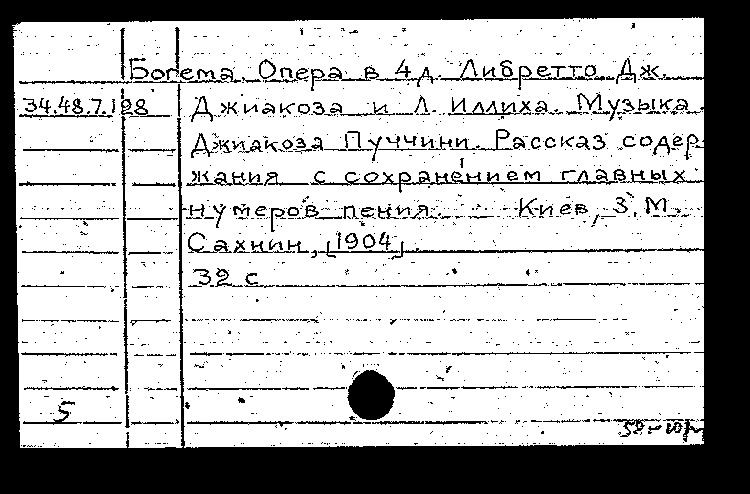 Богема. Опера в 4 д. Либретто Дж.
34.48.7.198 Джиакоза и Л. Иллиха. Музыка
Джиакоза Пуччини. Рассказ содер
жания с сохранением главных
нумеров пения. Киев, З.М.
Сахнин, [1904].
32 с
5